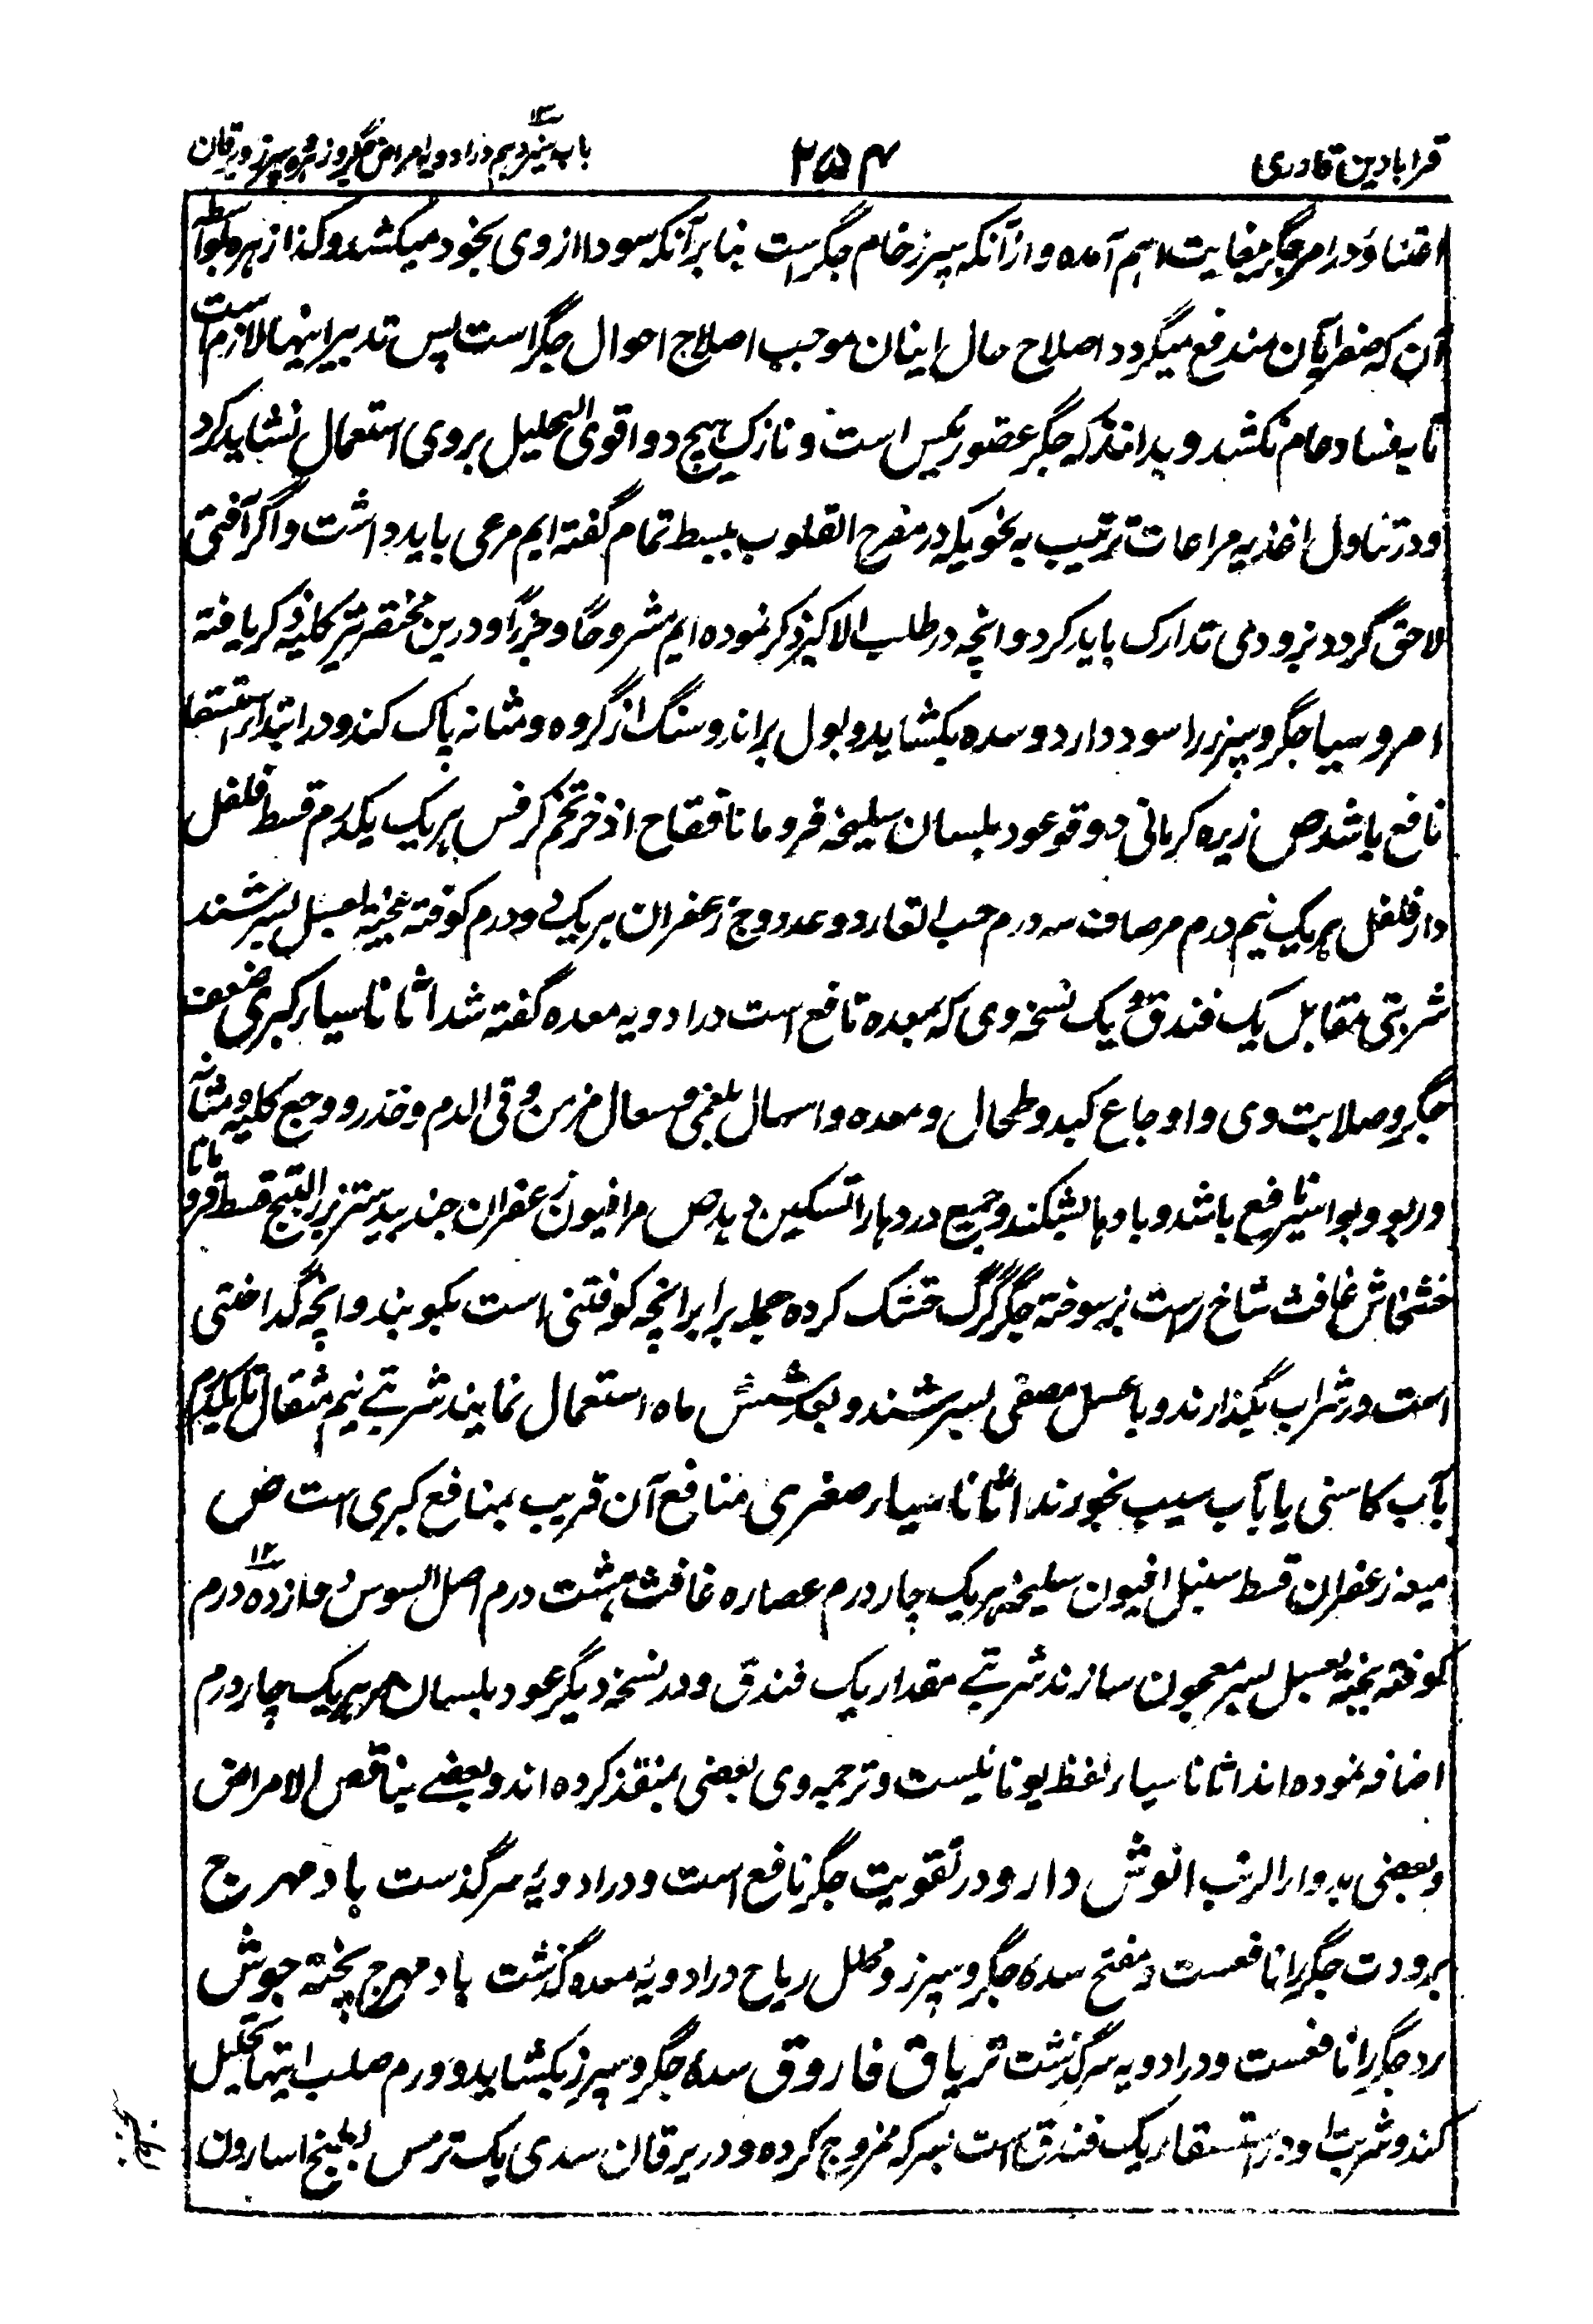 قرابادین قادری
۲۵۴
باب سیزدهم در ادویه امراض جگر و زهره و سپرز و یرقان
اعتناء در امر جگر بغایت اهم آمده و ازآنکه سپرز خام جگر است بنا برآنکه سودا از وی بخود میکشد و کذا زهره بواسطه
آن که صفرا بآن مندفع میگردد اصلاح حال اینان موجب اصلاح احوال جگر است پس تدبیر اینها لازم است
تا بفساد عام نکشد و بدانند که جگر عضو رئیس است و نازک هیچ دوا قوی التحلیل بر وی استعمال نشاید کرد
و در تناول اغذیه مراعات ترتیب به نحویکه در مفرح القلوب ببسط تمام گفته ایم مرعی باید داشت و اگر آفتی
لاحق گردد بزودی تدارک باید کرد و انچه در طلب الاکبر ذکر نموده ایم مشروحا و درین مختصر نیز کلیه ذکر یافته
امروسیا جگر و سپرز را سود دارد و سده بکشاید و بول براند و سنگ از گرده و مثانه پاک کند و در ابتداء استسقا
نافع باشد ص زیره کرمانی دوقو عود بلسان سلیخه قردمانا فقاح اذخر تخم کرفس هر یک یکدرم قسط فلفل
دارفلفل هر یک نیم درم مرصاف سه درم حب الغار دو عدد وج زعفران هر یک دو درم کوفته بیخته بعسل بسرشند
شربتی مقابل یک فندق و یک نسخه وی که بمعده نافع است در ادویه معده گفته شد اثاناسیا کبری ضعف
جگر و صلابت وی و اوجاع کبد و طحال و معده و اسهال بلغمی و سعال مزمن و قی الدم و خدر و وجع کلیه و مثانه
و ربو و بواسیر نافع باشد و بادها بشکند و جمیع دردها را تسکین دهد ص مر افیون زعفران جندبیدستر بزرالبنج قسط قردمانا
خشخاش غافث شاخ راست بز سوخته جگر گرگ خشک کرده جمله برابر انچه کوفتنی است بکوبند و انچه گداختنی
است در شراب بگذارند و با عسل مصفی بسرشند و بعد شش ماه استعمال نمایند شربتے نیم مثقال تا یکدرم
بآب کاسنی یا بآب سیب بخورند اثاناسیا صغری منافع آن قریب بمنافع کبری است ص
میعه زعفران قسط سنبل افیون سلیخه هر یک چار درم عصاره غافث هشت درم اصل السوس دوازده ۱۲ درم
کوفته بیخته بعسل بسر معجون سازند شربتے مقدار یک فندق و در نسخه دیگر عود بلسان مر هر یک چار درم
اضافه نموده اند اثاناسیا لفظ یونانیست و ترجمه وی بعضی بمنقذ کرده اند و بعضے بناقص الامراض
و بعضی بدوار الذئب انوش دارو در تقویت جگر نافع است و در ادویۀ سر گذشت بادمهرج
برودت جگر را نافعست و مفتح سدۀ جگر و سپرز و محلل ریاح در ادویۀ معده گذشت بادمهرج پخته جوش
برد جگر را نافعست و در ادویه سر گذشت تریاق فاروق سدۀ جگر و سپرز بکشاید و ورم صلب اینها تحلیل
کند و شربت او در استسقا یک فندق است بسرکه ممزوج کرده و در یرقان سدی یک ترمس بطبیخ اسارون